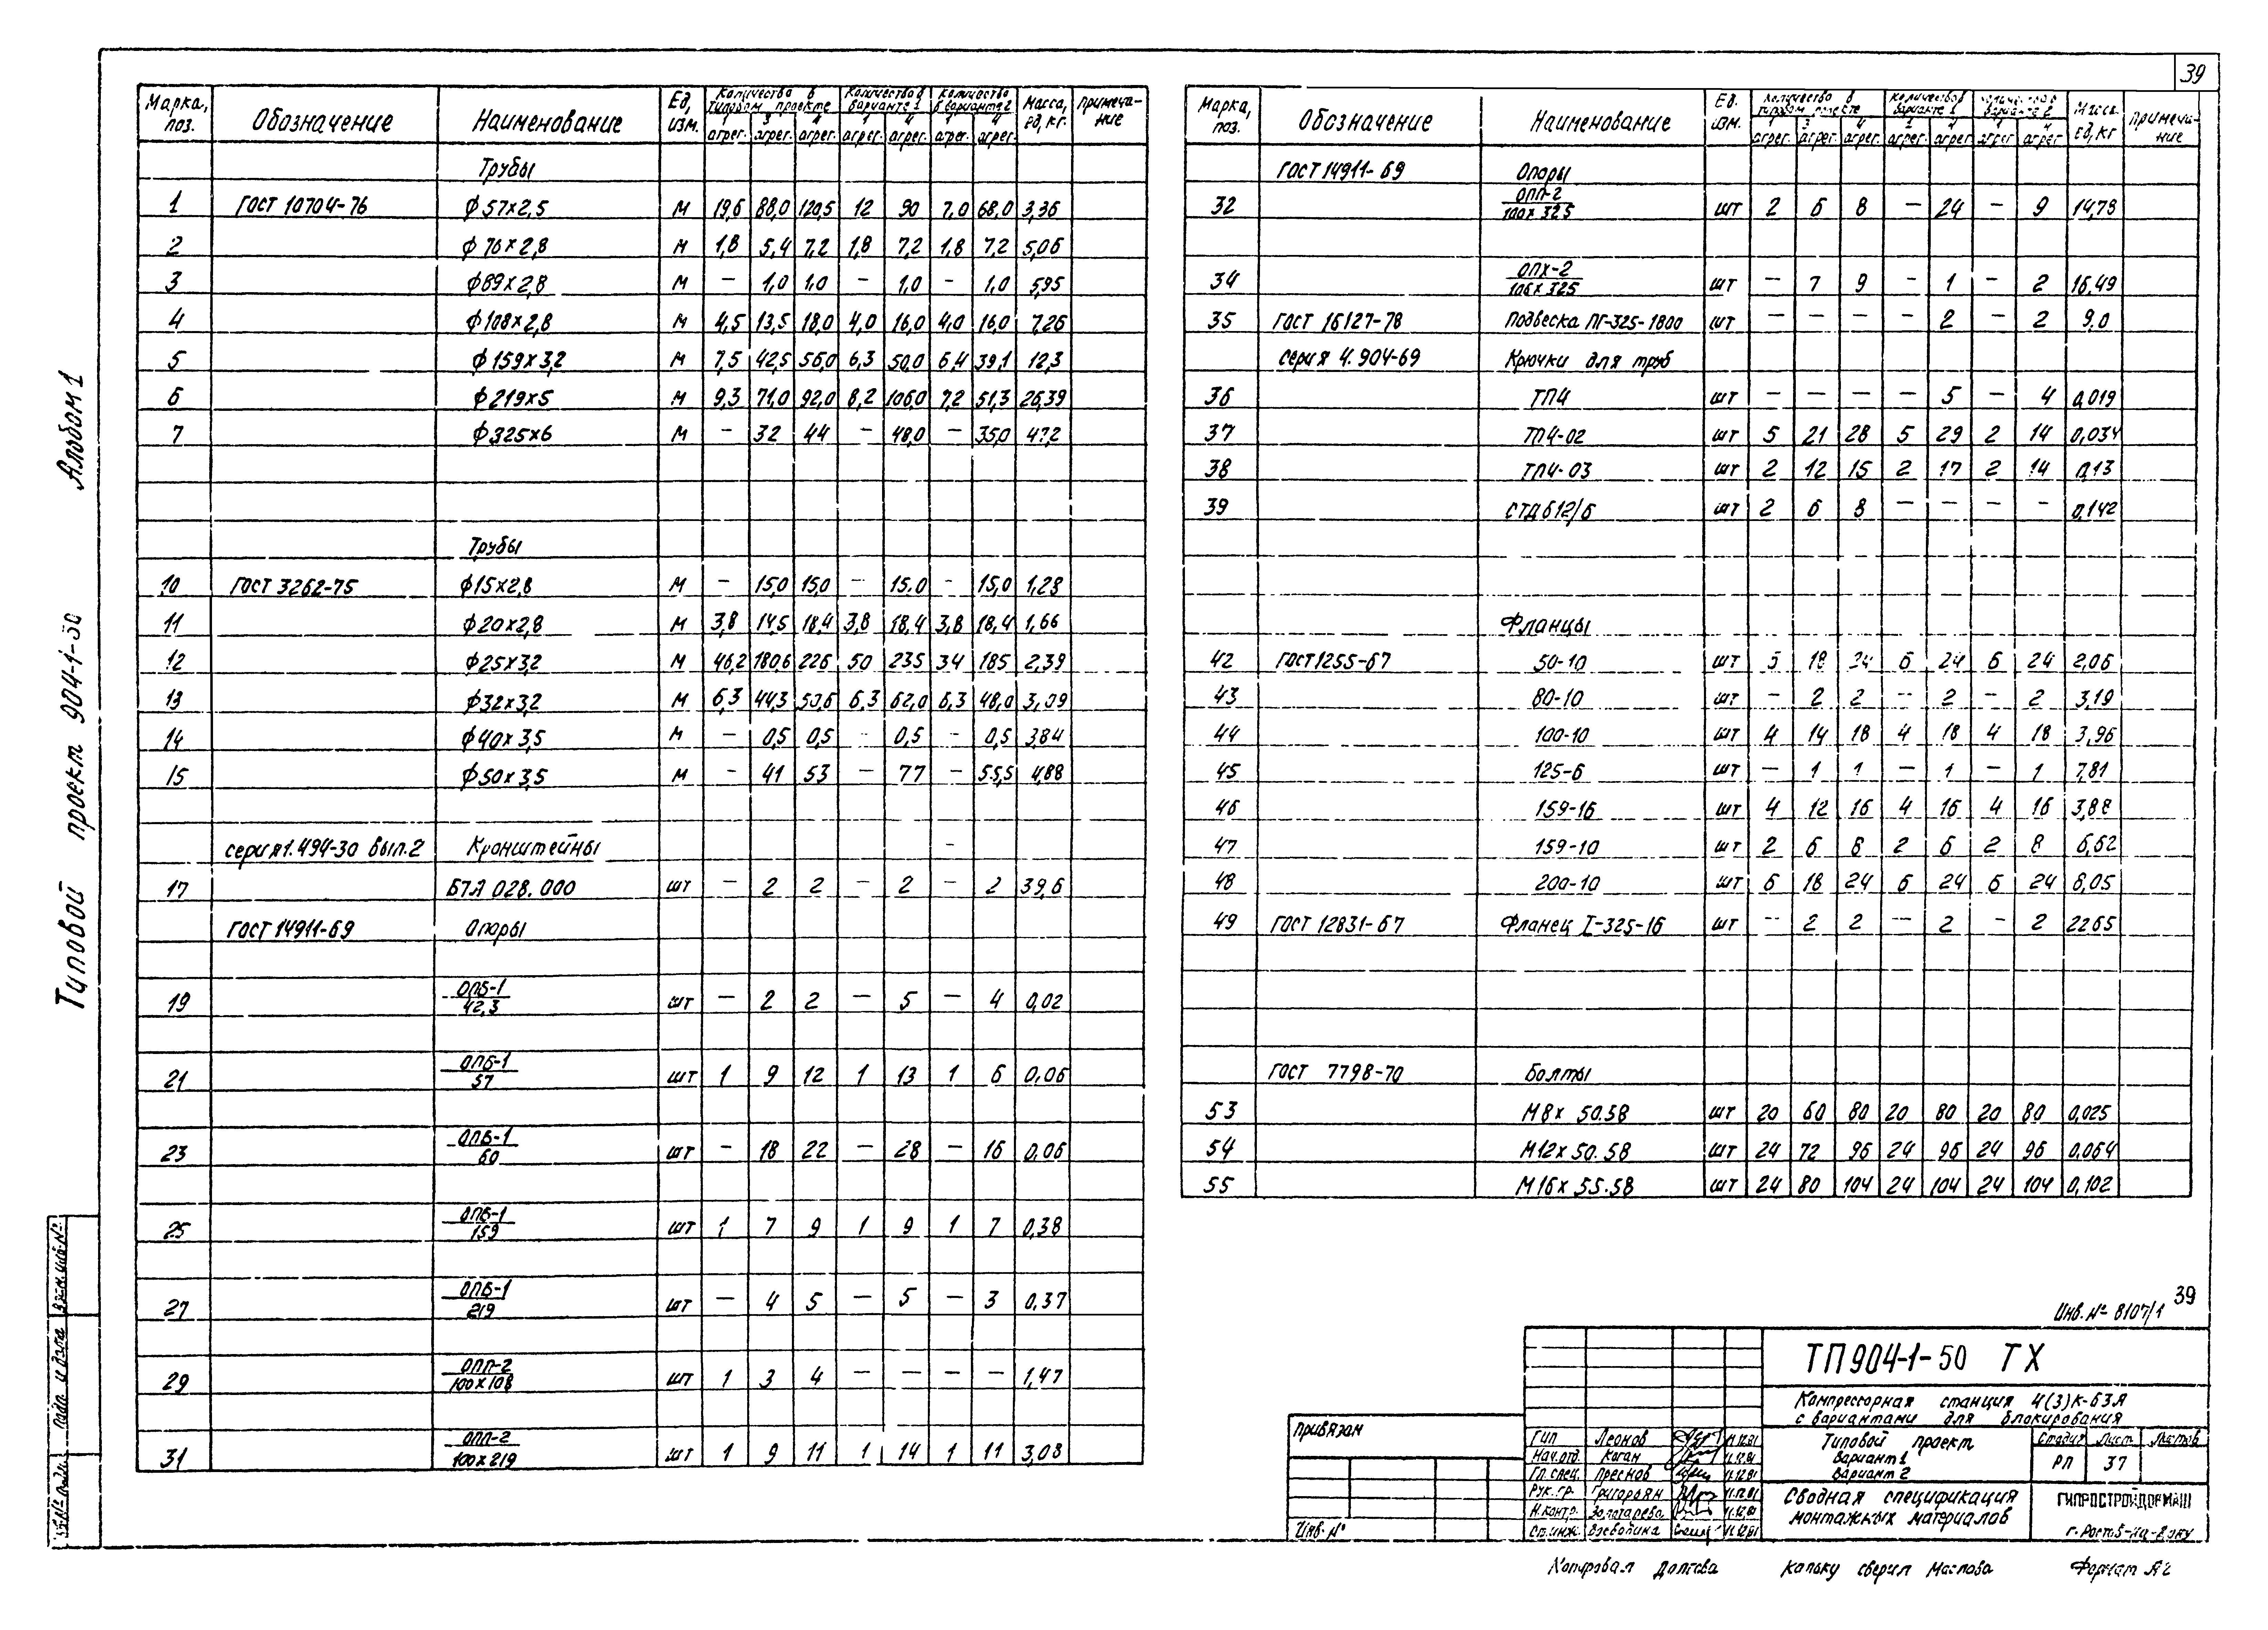 39
Альбом 1
Типовой проект 904-1-50
Марка, поз. Обозначение Наименование Ед. изм. Количество в типовом проекте Количество в варианте 1 Количество в варианте 2 Масса, ед, кг. Примечание
1 агрег. 3 агрег. 4 агрег. 1 агрег. 4 агрег. 1 агрег. 4 агрег.
Трубы
1 ГОСТ 10704-76 ф57х2,5 м 19,6 88,0 120,5 12 90 7,0 68,0 3,36
2 ф76х2,8 м 1,8 5,4 7,2 1,8 7,2 1,8 7,2 5,06
3 ф89х2,8 м – 1,0 1,0 – 1,0 – 1,0 5,95
4 ф108х2,8 м 4,5 13,5 18,0 4,0 16,0 4,0 16,0 7,26
5 ф159х3,2 м 7,5 42,5 56,0 6,3 50,0 6,4 39,1 12,3
6 ф219х5 м 9,3 71,0 92,0 8,2 106,0 7,2 51,3 26,39
7 ф325х6 м – 32 44 – 48,0 – 35,0 47,2
Трубы
10 ГОСТ 3262-75 ф15х2,8 м – 15,0 15,0 – 15.0 – 15,0 1,28
11 ф20х2,8 м 3,8 14,5 18,4 3,8 18,4 3,8 18,4 1,66
12 ф25х3,2 м 46,2 180,6 226 50 235 34 185 2,39
13 ф32х3,2 м 6,3 44,3 50,6 6,3 62,0 6,3 48,0 3,09
14 ф40х3,5 м – 0,5 0,5 – 0,5 – 0,5 3,84
15 ф50х3,5 м – 41 53 – 77 – 55,5 4,88
серия 1.494-30 вып.2 Кронштейны
17 Б7А 028.000 шт – 2 2 – 2 – 2 39,6
ГОСТ 14911-69 Опоры
19 ОПБ-1/42,3 шт – 2 2 – 5 – 4 0,02
21 ОПБ-1/57 шт 1 9 12 1 13 1 6 0,06
23 ОПБ-1/60 шт – 18 22 – 28 – 16 0,06
25 ОПБ-1/159 шт 1 7 9 1 9 1 7 0,38
27 ОПБ-1/219 шт – 4 5 – 5 – 3 0,37
29 ОПП-2/100х108 шт 1 3 4 – – – – 1,47
31 ОПП-2/100х219 шт 1 9 11 1 14 1 11 3,08
Марка, поз. Обозначение Наименование Ед. изм. Количество в типовом проекте Количество в варианте 1 Количество в варианте 2 Масса ед, кг Примечание
1 агрег. 3 агрег. 4 агрег. 1 агрег. 4 агрег. 1 агрег 4 агрег
ГОСТ 14911-69 Опоры
32 ОПП-2/100х325 шт 2 6 8 – 24 – 9 14,78
34 ОПХ-2/100х325 шт – 7 9 – 1 – 2 16,49
35 ГОСТ 16127-78 Подвеска ПГ-325-1800 шт – – – – 2 – 2 9,0
серия 4.904-69 Крючки для труб
36 ТП4 шт – – – – 5 – 4 0,019
37 ТП4-02 шт 5 21 28 5 29 2 14 0,034
38 ТП4-03 шт 2 12 15 2 17 2 14 0,13
39 СТД 612/6 шт 2 6 8 – – – – 0,142
Фланцы
42 ГОСТ 1255-67 50-10 шт 18 24 6 24 6 24 2,06
43 80-10 шт – 2 2 – 2 – 2 3,19
44 100-10 шт 4 14 18 4 18 4 18 3,96
45 125-6 шт – 1 1 – 1 – 1 7,81
46 159-16 шт 4 12 16 4 16 4 16 3,88
47 159-10 шт 2 6 8 2 6 2 8 6,62
48 200-10 шт 6 18 24 6 24 6 24 8,05
49 ГОСТ 12831-67 Фланец I-325-16 шт – 2 2 – 2 – 2 22,65
ГОСТ 7798-70 Болты
53 М8х 50.58 шт 20 60 80 20 80 20 80 0,025
54 М12х 50.58 шт 24 72 96 24 96 24 96 0,064
55 М16х 55.58 шт 24 80 104 24 104 24 104 0,102
Инв. № 8107/1 39
ТП904-1-50 ТХ
Компрессорная станция 4(3)К-63А
с вариантами для блокирования
Привязан
Инв. №
Гип Леонов 11.12.81
Нач.отд. Коган 11.12.81
Гл. спец. Преснов 11.12.81
Рук. гр. Григорьян 11.12.81
Н. контр. Золотарева 11.12.81
Ст. инж. Воеводина 11.12.81
Типовой проект
Вариант 1
Вариант 2
Стадия Лист Листов
РП 37
Сводная спецификация
монтажных материалов
ГИПРОСТРОЙДОРМАШ
г. Ростов-на-Дону
Взам. инв. №
Подп. и дата
Инв. № подл.
Копировал Долгова Кальку сверил Маслова Формат А2